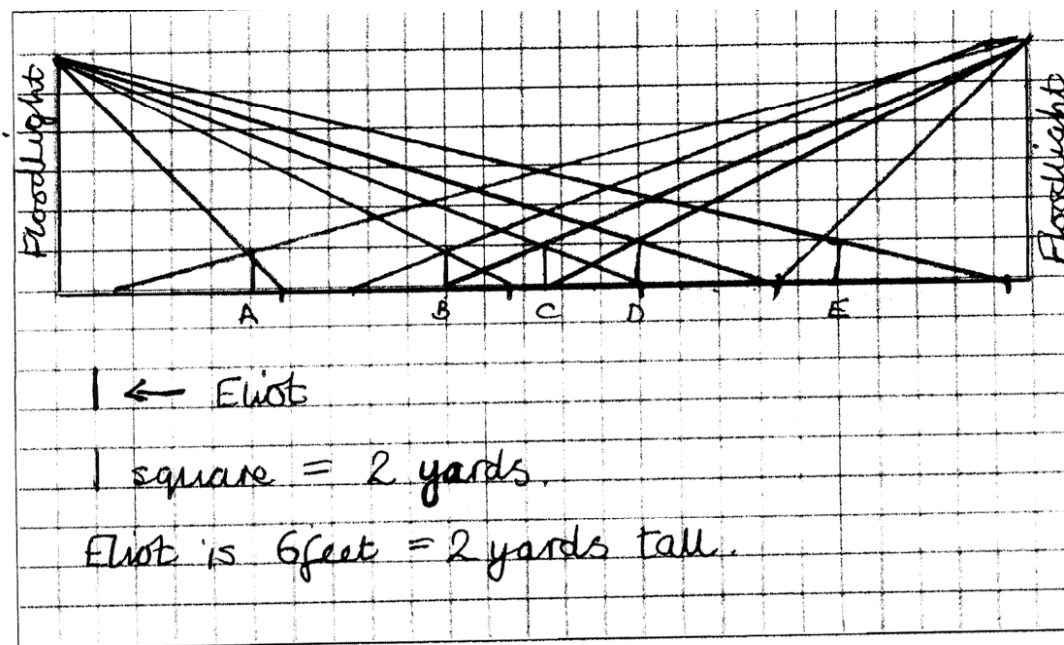 Floodlight
Floodlight
A B C D E
| ← Eliot
1 square = 2 yards.
Eliot is 6feet = 2 yards tall.